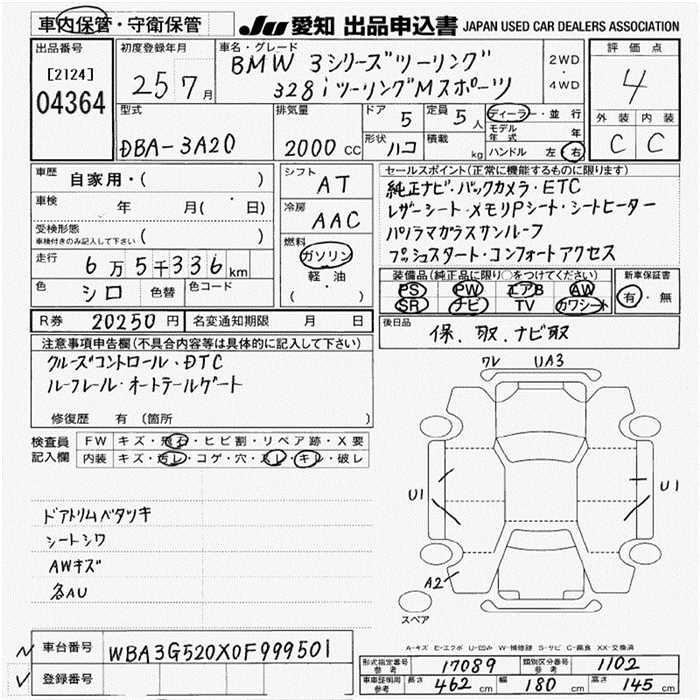 車内保管・守衛保管 JU 愛知 出品申込書 JAPAN USED CAR DEALERS ASSOCIATION
出品番号 [2124] 04364
初度登録年月 25 7月
車名・グレード BMW 3シリーズツーリング
328iツーリングMスポーツ
2WD・4WD
評価点 4
外装 内装
C C
型式 DBA-3A20
排気量 2000 CC
ドア 5 定員 5人
形状 ハコ 積載 kg
ディーラー・並行
モデル年式 年
ハンドル 左 右
車歴 自家用・( )
車検 年 月( 日)
受検形態 ( )
車検付きのみ記入して下さい
走行 6万5千336km
色 シロ 色替 色コード
シフト AT
冷房 AAC
燃料 ガソリン
軽・油
( )
セールスポイント(正常に機能するものに限ります)
純正ナビ・バックカメラ・ETC
レザーシート・メモリPシート・シートヒーター
パノラマガラスサンルーフ
プッシュスタート・コンフォートアクセス
装備品(純正品に限り○をつけてください)
PS PW エアB AW
SR ナビ TV カワシート
新車保証書
有・無
R券 20250円 名変通知期限 月 日
後日品 保、取、ナビ取
注意事項申告欄(不具合内容等は具体的に記入して下さい)
クルーズコントロール・DTC
ルーフレール・オートテールゲート
修復歴 有(箇所 )
検査員記入欄
FW キズ・飛石・ヒビ割・リペア跡・X要
内装 キズ・汚レ・コゲ・穴・スレ・キレ・破レ
ドアトリムベタツキ
シートシワ
AWキズ
各AU
ワレ UA3
U1 U1
A2
スペア
A-キズ E-エクボ U-凹み W-補修跡 S-サビ C-腐食 XX-交換済
車台番号 WBA3G520X0F999501
登録番号
形式指定番号 参考 17089 類別区分番号 参考 1102
車車証明用 参考 長さ 462 cm 幅 180 cm 高さ 145 cm